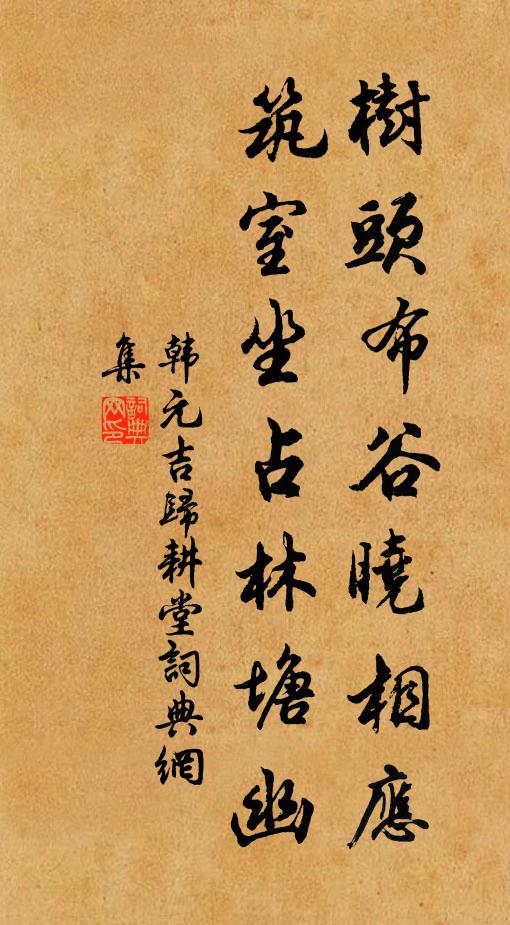 樹頭布谷曉相應
筑室坐占林塘幽
韩元吉歸耕堂詞典網
集
詞典網印